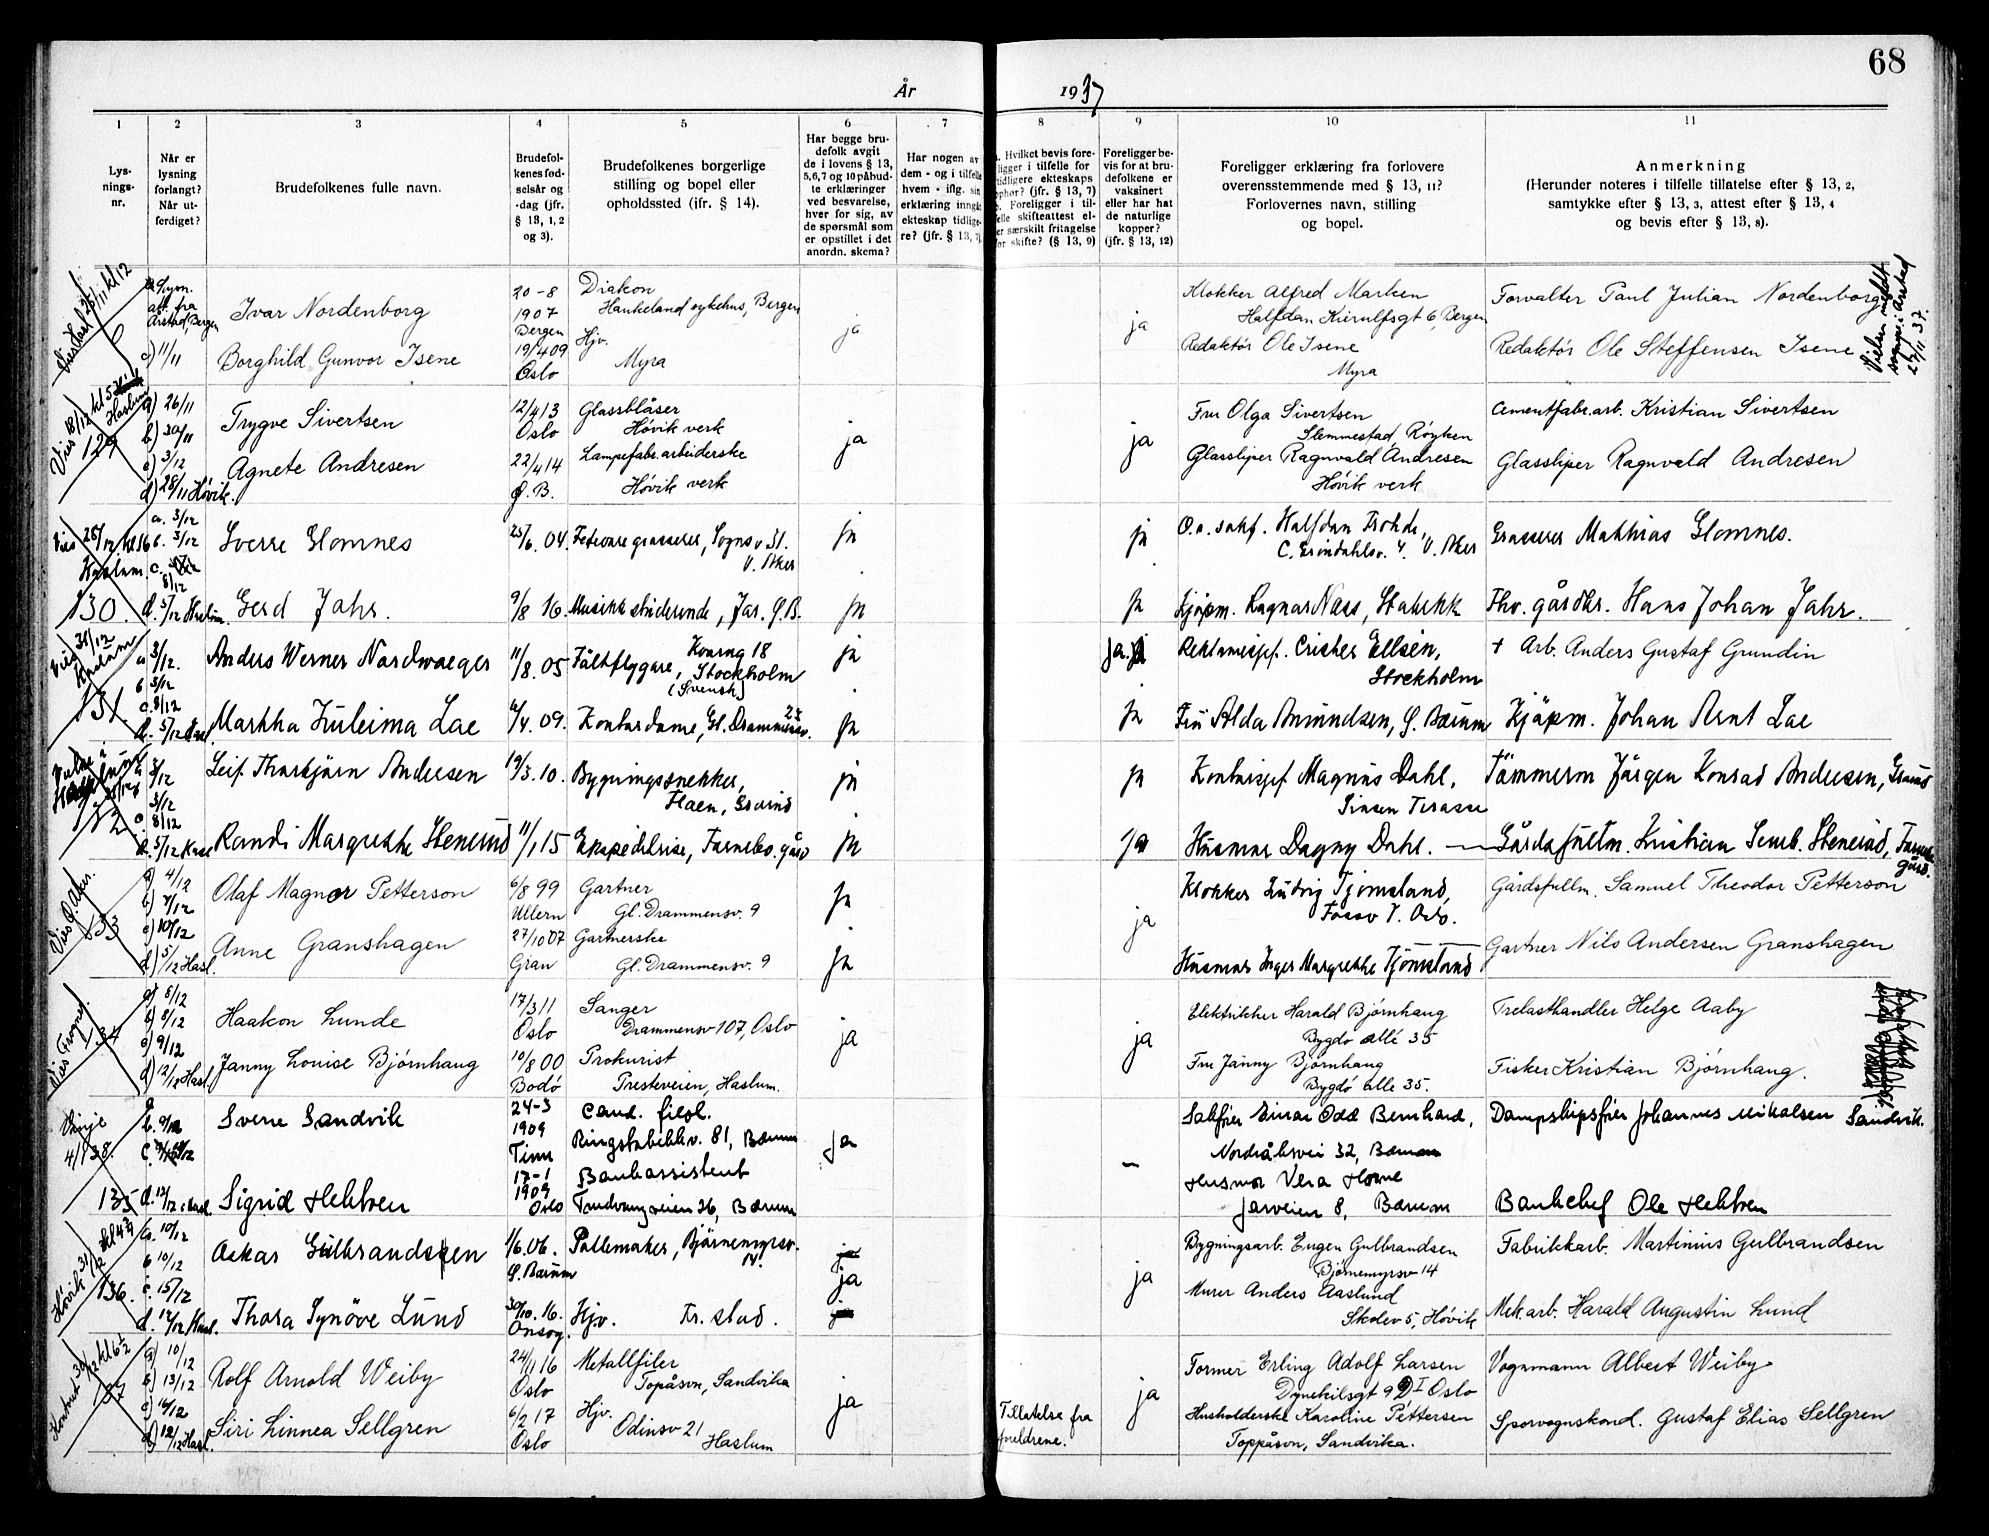 68
År 1937
1 2 3 4 5 6 7 8 9 10 11
Lys-
nings-
nr.
Når er
lysning
forlangt?
Når ut-
ferdiget?
Brudefolkenes fulle navn.
Brudefol-
kenes fød-
selsår og
-dag (jfr.
§ 13, 1, 2
og 3).
Brudefolkenes borgerlige
stilling og bopel eller
opholdssted (ifr. § 14).
Har begge bru-
defolk avgit
de i lovens § 13,
5,6,7 og 10 påbud-
te erklæringer
ved besvarelse,
hver for sig, av
de spørsmål som
er opstillet i det
anordn. skema?
Har nogen av
dem - og i tilfelle
hvem - iflg. sin
erklæring inngåt
ekteskap tidlige-
re? (jfr. § 13, 7)
Hvilket bevis fore-
ligger i tilfelle for
tidligere ekteskaps
ophør? (jfr. § 13, 7)
Foreligger i til-
felle skifteattest el-
er særskilt fritagelse
for skifte? (§ 13, 9)
Foreligger be-
vis for at bru-
defolkene er
vaksinert
eller har hat
de naturlige
kopper?
(jfr. § 13, 12)
Foreligger erklæring fra forlovere
overensstemmende med § 13, 11?
Forlovernes navn, stilling
og bopel.
Anmerkning
(Herunder noteres i tilfelle tillatelse efter § 13, 2,
samtykke efter § 13, 3, attest efter § 13, 4
og bevis efter § 13, 8).
att. fra
Årstad, Bergen
c) 11/11
Ivar Nordenborg
20-8
1907
Bergen
Diakon
Haukeland sykehus, Bergen
ja
ja
Klokker Alfred Marken
Halfdan Kierulfsgt 6, Bergen
Forvalter Paul Julian Nordenborg
Borghild Gunvor Isene
19/4 09
Oslo
Hjv.
Myra
Redaktør Ole Isene
Myra
Redaktør Ole Steffensen Isene
27/11 37.
129
a) 26/11
b) 30/11
c) 3/12
d) 28/11 Høvik.
Trygve Sivertsen
12/4 13
Oslo
Glassblåser
Høvik verk
ja
ja
Fru Olga Sivertsen
Slemmestad, Røyken
Cementfabr.arb. Kristian Sivertsen
Agnete Andresen
22/4 14
Ø. B.
Lampefabr.arbeiderske
Høvik verk
Glassliper Ragnvald Andresen
Høvik verk
Glassliper Ragnvald Andresen
130.
a. 3/12
3/12
8/12
d. 5/12 Haslum.
Sverre Glomnes
25/6. 04.
V. Aker
ja
ja
O.r. sakf. Halfdan Frohde,
V. Aker
Grosserer Mathias Glomnes.
Gerd Jahr.
9/8 16.
Musikkstuderende, Jar. Ø.B.
ja
ja
Kjøpm. Ragnar Næss, Stabekk
Fhv. gårdbr. Hans Johan Jahr.
131.
a 3/12.
b 3/12
c. 8/12
d. 5/12
Anders Werner Nordwaeger
11/8. 05
Fältflygare, Kvarng 18
Stockholm
(Svensk)
ja
ja.
Reklamesjef. Crister Ellsén,
Stockholm
+ Arb. Anders Gustaf Grundin
Martha Zuleima Lae
/4. 09.
Kontordame, Gl. Drammensv.
ja
ja
Fru Alda Amundsen, Ø. Bærum
Kjøpm. Johan Arnt Lae
132
3/12
3/12
8/12
d. 5/12
Leif Thorbjørn Andersen
19/3. 10.
Bygningssnekker,
ja
ja
Kontorsjef Magnus Dahl,
Sinsen Terasse
Tømmerm Jørgen Konrad Andersen,
Randi Margrethe Stenerud
11/1 15
Ekspeditrise,
ja
ja
Husmor Dagny Dahl. —
Gårdsfullm. Kristian Stenerud,
133
a) 4/12
b) 7/12
c) 10/12
d) 5/12 Hasl.
Olaf Magnor Petterson
6/8 99
Ullern
Gartner
Gl. Drammensv. 9
ja
ja
Klokker Ludvig Tjømsland,
Gårdsfullm. Samuel Theodor Petterson
Anne Granshagen
27/10 07
Gran
Gartnerske
Gl. Drammensv. 9
ja
Husmor Inger Margrethe Tjømsland
Gartner Nils Andersen Granshagen
134
a) 8/12
b) 8/12
c) 9/12
d) 12/12 Hasl.
Haakon Lunde
17/3 11
Oslo
Sanger
Drammensv 107, Oslo
ja
ja
Elektriker Harald Bjørnhaug
Bygdø allé 35
Trelasthandler Helge Aaby
Janny Louise Bjørnhaug
10/8 00
Bodø
Prokurist
Presteveien, Haslum.
Fru Janny Bjørnhaug
Bygdø alle 35.
Fisker Kristian Bjørnhaug.
4/1 38.
135
b. 9/12
d. 12/12
Sverre Sandvik
24-3
1909
Tinn
cand. filol.
Ringstabekkv. 81, Bærum
ja
—
Sakfør Einar Odd Bernhard,
32, Bærum
Dampskipsfører Johannes Mikalsen Sandvik.
Sigrid Hektoen
17-1
1909
Oslo
Bankassistent
Tundvangveien 26, Bærum
Husmor Vera Horne
Jarveien 8, Bærum
Bankchef Ole Hektoen
136.
a. 10/12
b 10/12
c. 15/12
d. 12/12 Hasl.
Oskar Gulbrandsen
1/6. 06.
Ø. Bærum
Pottemaker, Bjørnemyrsv.
14.
ja
ja
Bygningsarb. Eugen Gulbrandsen
Bjørnemyrsv 14
Fabrikkarb. Martinius Gulbrandsen
Thora Synøve Lund
30/10. 16.
Onsøy.
Hjv. Fr. stad.
Murer Anders Aaslund
Skolev 5, Høvik
Mek.arb. Harald Augustin Lund
137
a) 10/12
b) 13/12
c) 16/12
d) 12/12 Hasl.
Rolf Arnold Weiby
24/1 16
Oslo
Metallfiler
Topåsvn, Sandvika
ja
ja
Former Erling Adolf Larsen
Dynekilsgt 9 Oslo
Vognmann Albert Weiby
Siri Linnea Sellgren
6/2 17
Oslo
Hjv.
Odinsv 21
Haslum
Tillatelse fra
foreldrene.
Husholderske Karoline Pettersen
Toppåsvn, Sandvika.
Sporvognskond. Gustaf Elias Sellgren